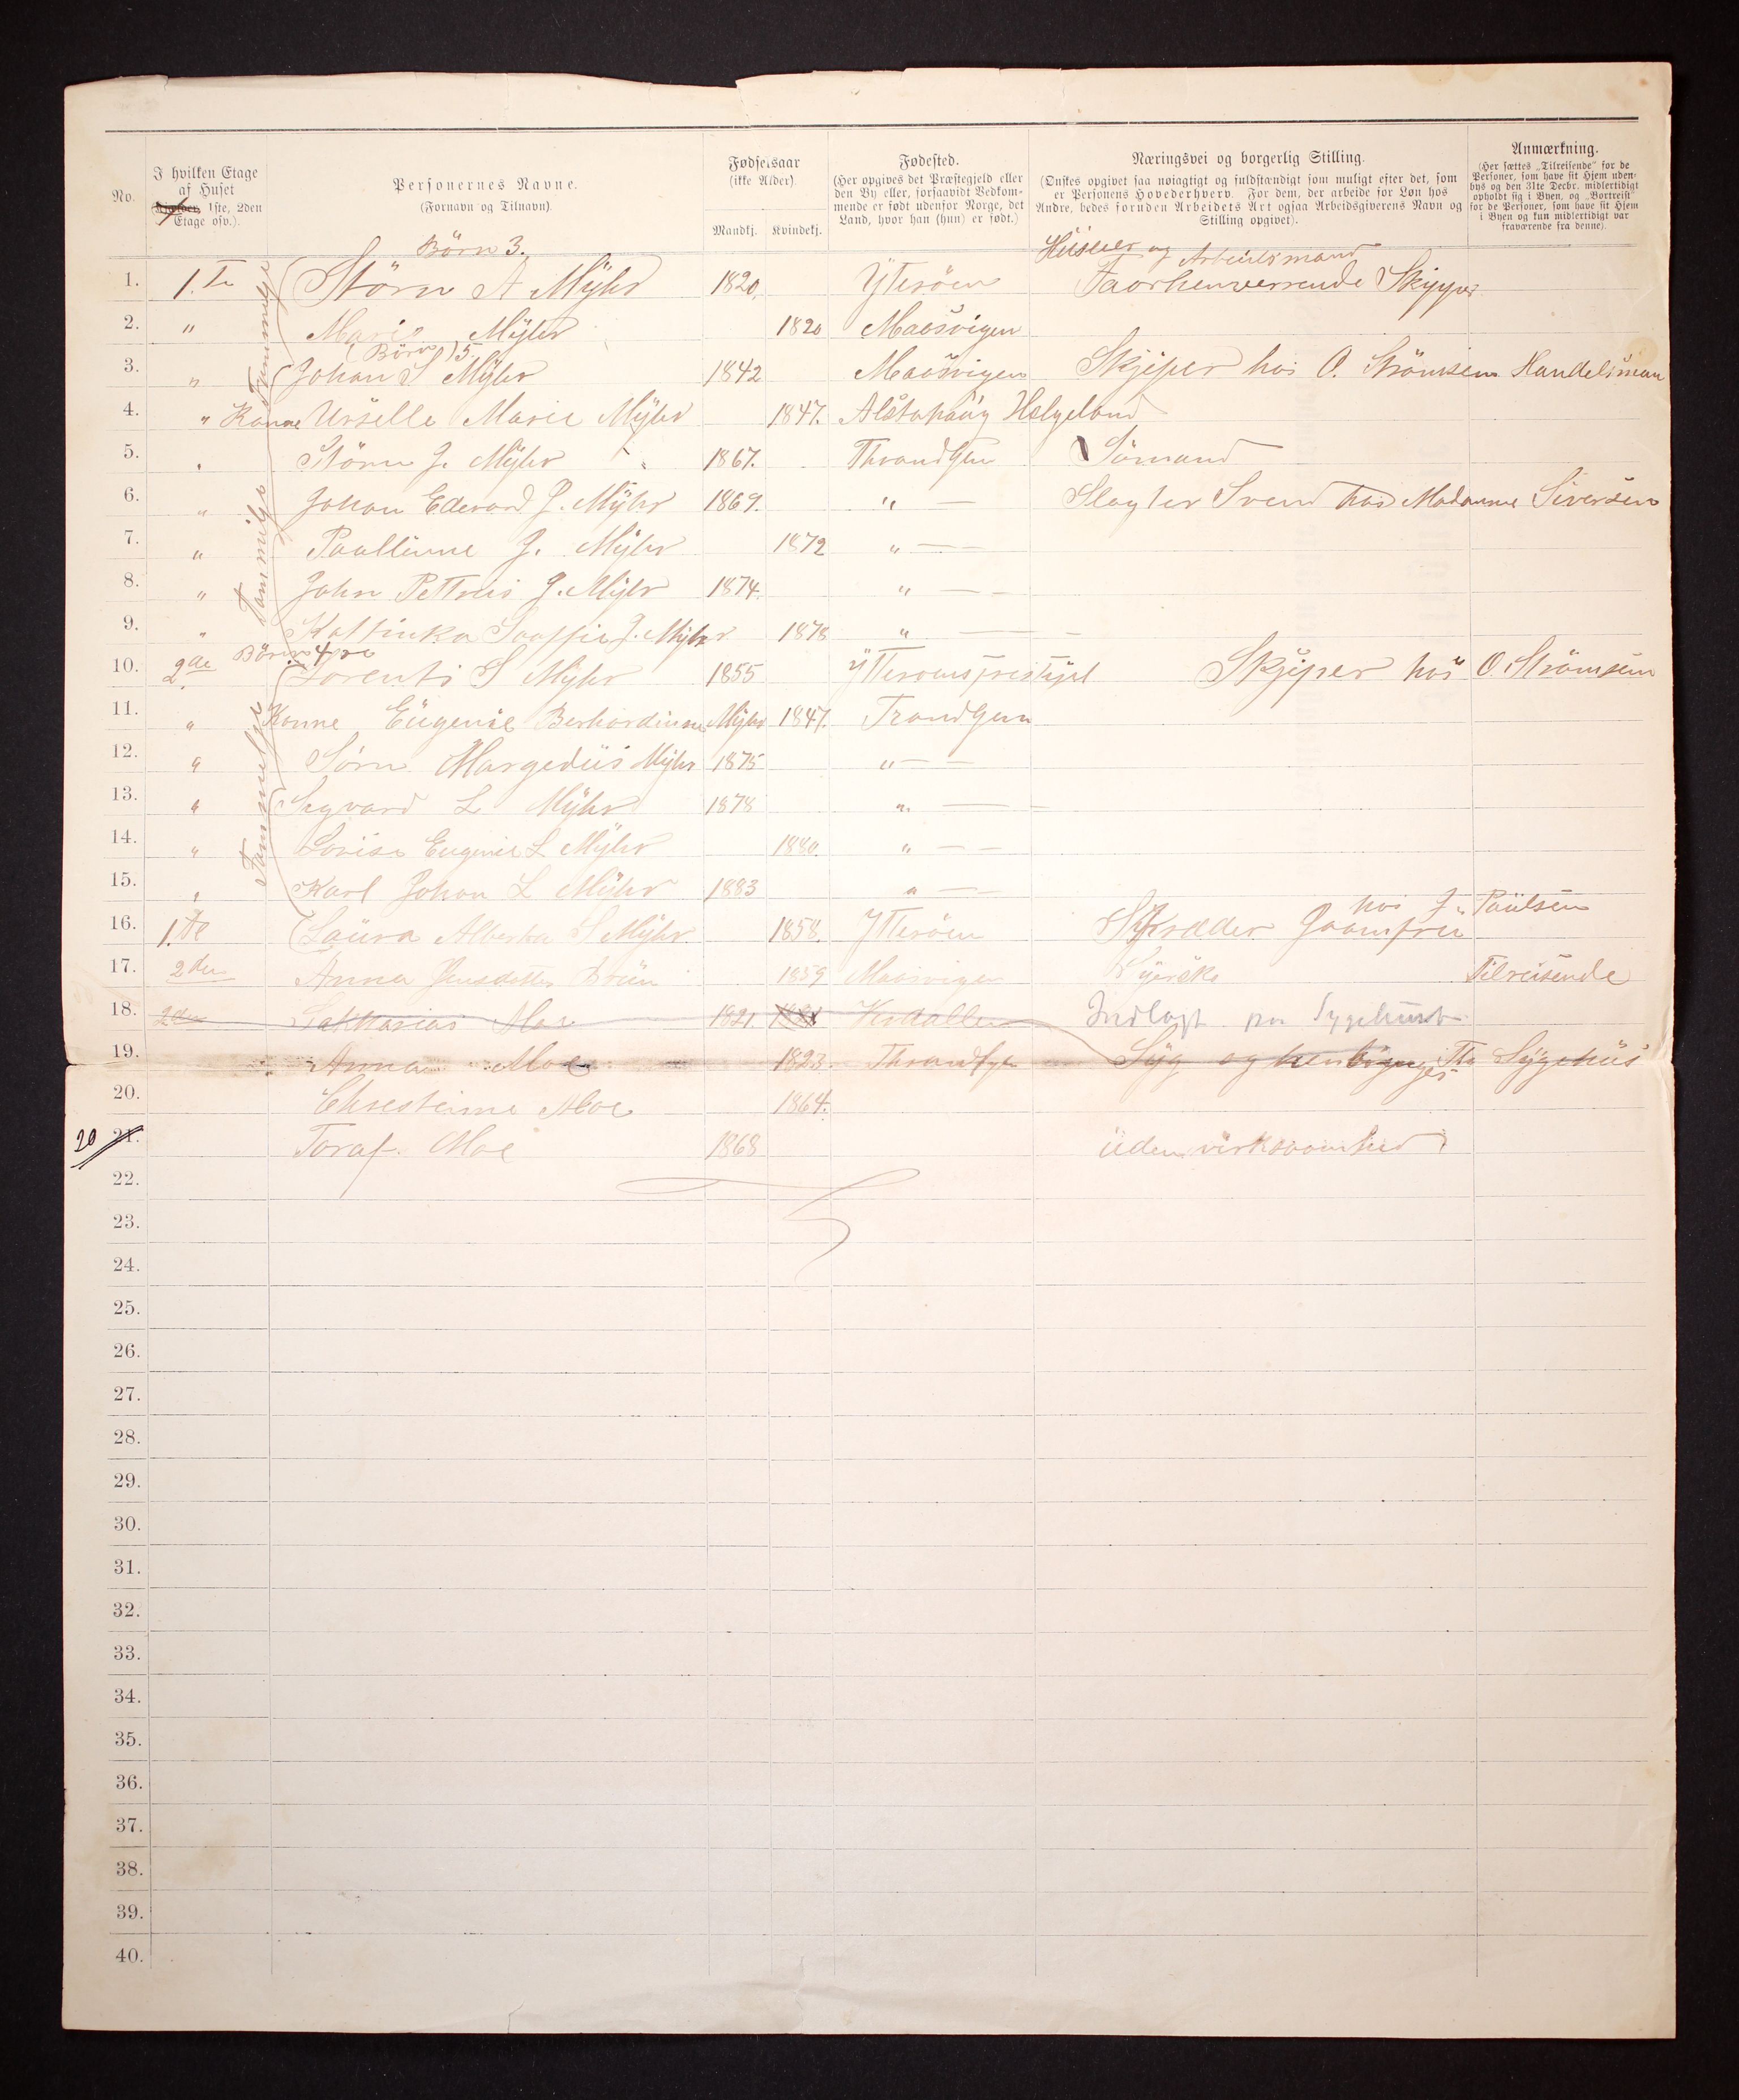 No.
I hvilken Etage af Huset (Kjælder, 1ste, 2den Etage osv.).
Personernes Navne. (Fornavn og Tilnavn).
Fødselsaar (ikke Alder). Mandkj. Kvindekj.
Fødested. (Her opgives det Præstegjeld eller den By eller, forsaavidt Vedkommende er født udenfor Norge, det Land, hvor han (hun) er født.)
Næringsvei og borgerlig Stilling. (Ønskes opgivet saa nøiagtigt og fuldstændigt som muligt efter det, som er Personens Hovederhverv. For dem, der arbeide for Løn hos Andre, bedes foruden Arbeidets Art ogsaa Arbeidsgiverens Navn og Stilling opgivet).
Anmærkning. (Her sættes „Tilreisende" for de Personer, som have sit Hjem udenbys og den 31te Decbr. midlertidigt opholdt sig i Byen, og „Bortreist" for de Personer, som have sit Hjem i Byen og kun midlertidigt var fraværende fra denne).
Börn 3. og Arbeidsmand
1. 1.Te Störn A Mÿhr 1820 Ÿteröen Faorhenverrende Skipper
2. " Marie Mÿhr 1820 Maosvigen
(Börn) 5.
3. " Johan S Mÿhr 1842 Maosvigen Skjiper hos O. Strömsem Handelsman
4. " Konne Urselle Marie Mÿhr 1847. Alstahaug Helgeland
5. " Störn J. Mÿhr 1867. Throndhjen Sömand
6. " Johan Edevard J. Mÿhr 1869. " — Slagter Svend hos Madamme Siversen
7. " Paulline J. Mÿhr 1872 " —
8. " John Pettreis J. Mÿhr 1874. " —
9. " Kattinka Soaffie J. Mÿhr 1878 " —
Börn 4
10. 2de Lorents S Mÿhr 1855 Skjiper hos O. Strömsem
11. " Konne Eügenie Berhardinne Mÿhr 1847. Trondhjem
12. " Sörn Margedüs Mÿhr 1875 " —
13. " Sigvard L Mÿhr 1878 " —
14. " Lovise Eugenie L Mÿhr 1880. " —
15. " Karl Johan L Mÿhr 1883 " —
hos J. Paülsen
16. 1.te Laüra Alberta S Mÿhr 1858. Ytteröen Skræder Jaamfru
17. 2den Anna Jensdatter Brün 1859 Maosvigen Syerske Tilreisende
18. 2den Sakkarias Moe 1821 Verdallen Indlagt paa Sygehuset
19. Anna Moe 1823. Throndhjen Syg og Sÿgehüs
20. Chrestinne Moe 1864.
20 21. Toraf. Moe 1868 üden virksaamhed
22.
23.
24.
25.
26.
27.
28.
29.
30.
31.
32.
33.
34.
35.
36.
37.
38.
39.
40.
Fammilje
Fammilje
Fammilje